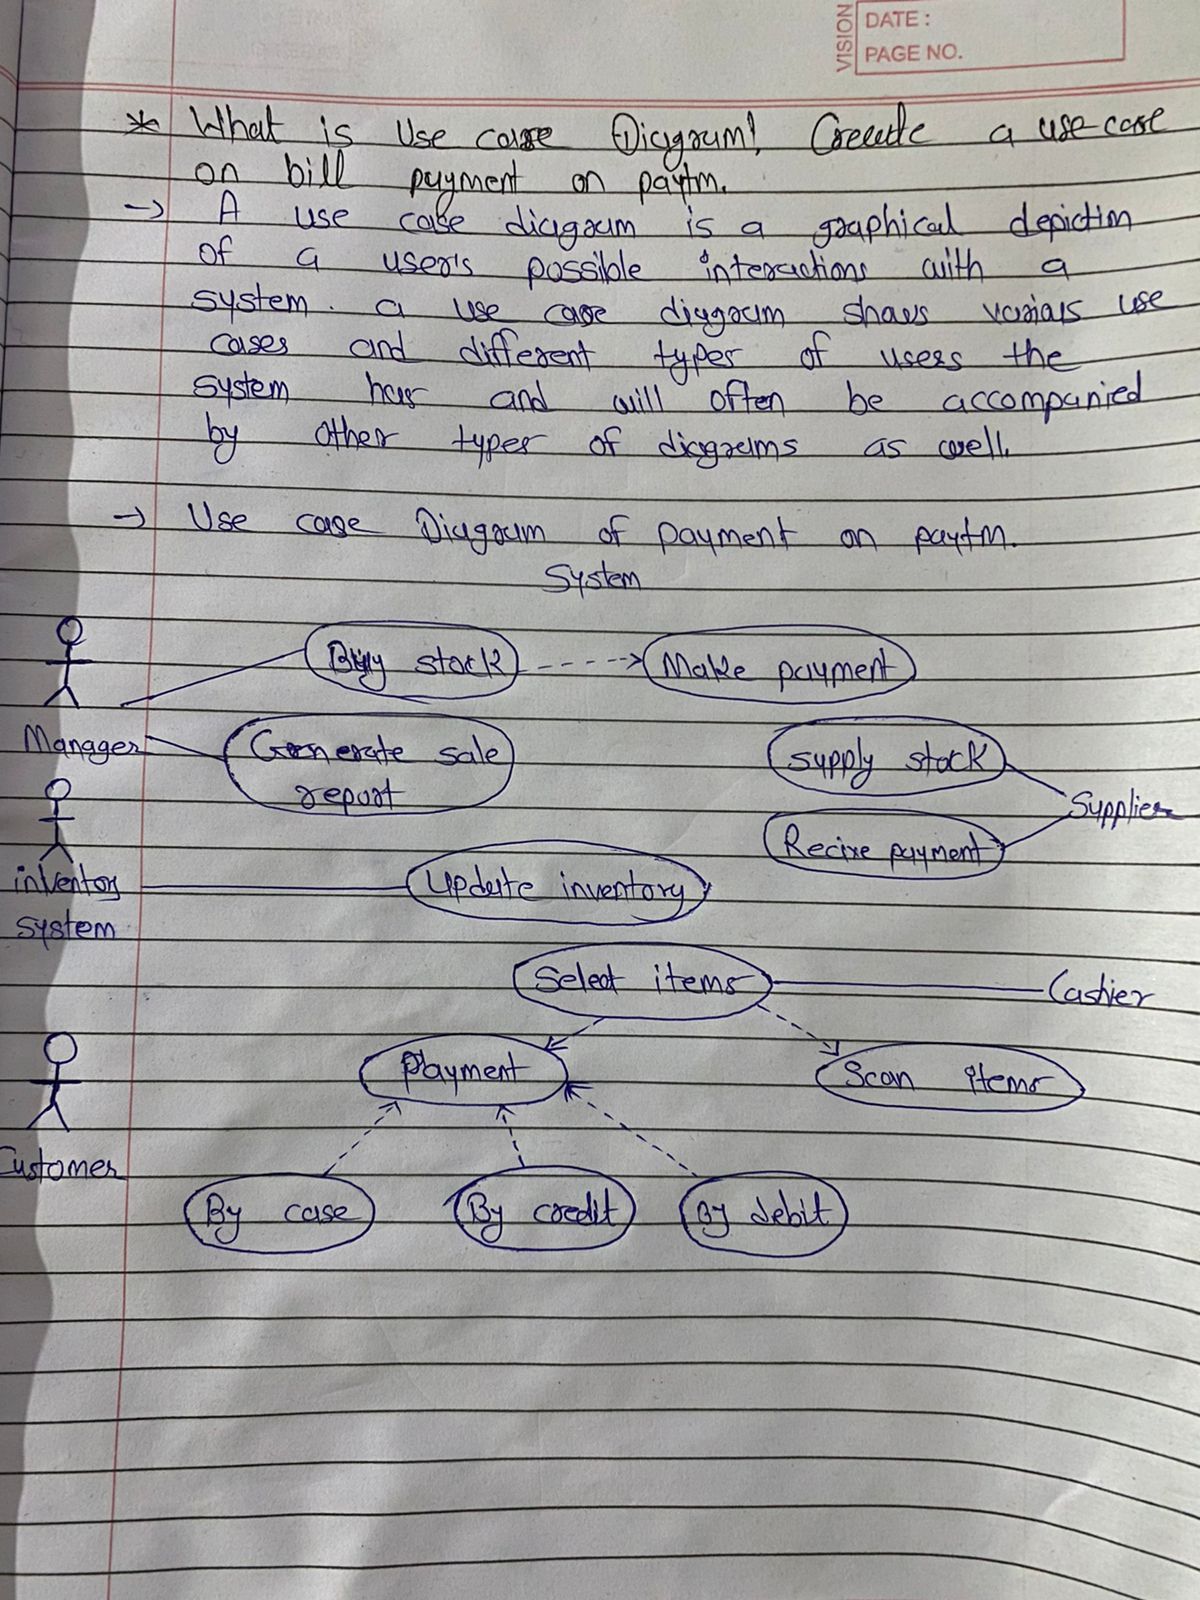 VISION
DATE :
PAGE NO.
* What is Use case Diagram! Create a use case
on bill payment on paytm.
→ A use case diagram is a graphical depictim
of a user's possible interactions with a
system. a use case diagram shows various use
cases and different types of users the
system has and will often be accompanied
by other types of diagrams as well.
→ Use case Diagram of payment on paytm.
System
Buy stock Make payment
Manager Generate sale supply stock
report
Supplier
Recive payment
inventory Update inventory
system
Select items Cashier
Payment Scan items
Customer
By case By credit By debit